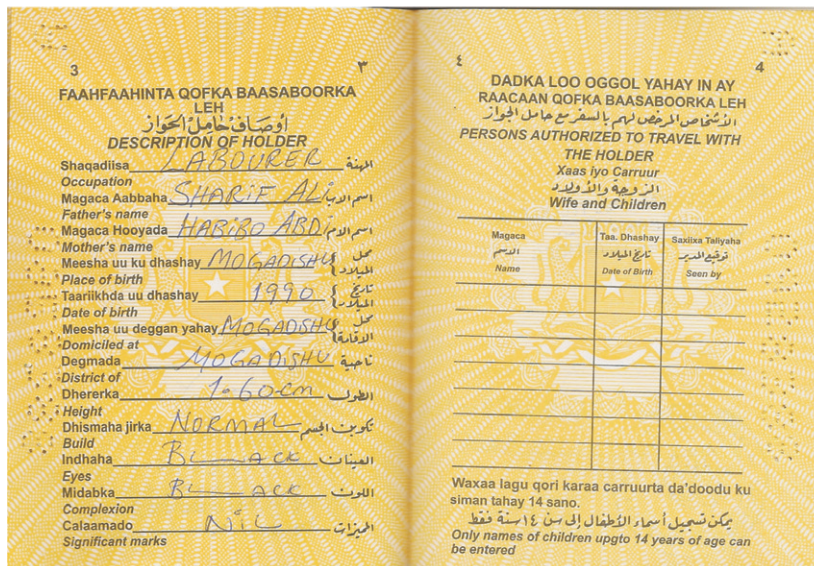 3 ٣
FAAHFAAHINTA QOFKA BAASABOORKA
LEH
أوصاف حامل الجواز
DESCRIPTION OF HOLDER
Shaqadiisa LABOURER المهنة
Occupation
Magaca Aabbaha SHARIF ALI اسم الاب
Father's name
Magaca Hooyada HABIBO ABDI اسم الام
Mother's name
Meesha uu ku dhashay MOGADISHU محل الميلاد
Place of birth
Taariikhda uu dhashay 1990 تاريخ الميلاد
Date of birth
Meesha uu deggan yahay MOGADISHU محل الاقامة
Domiciled at
Degmada MOGADISHU ناحية
District of
Dhererka 1.60cm الطول
Height
Dhismaha jirka NORMAL تكوين الجسم
Build
Indhaha BLACK العينان
Eyes
Midabka BLACK اللون
Complexion
Calaamado NIL المميزات
Significant marks
٤ 4
DADKA LOO OGGOL YAHAY IN AY
RAACAAN QOFKA BAASABOORKA LEH
الأشخاص المرخص لهم بالسفر مع حامل الجواز
PERSONS AUTHORIZED TO TRAVEL WITH
THE HOLDER
Xaas iyo Carruur
الزوجة والأولاد
Wife and Children
Magaca Taa. Dhashay Saxiixa Taliyaha
الاسم تاريخ الميلاد توقيع المدير
Name Date of Birth Seen by
Waxaa lagu qori karaa carruurta da'doodu ku
siman tahay 14 sano.
يمكن تسجيل أسماء الأطفال إلى سن ١٤ سنة فقط
Only names of children upgto 14 years of age can
be entered